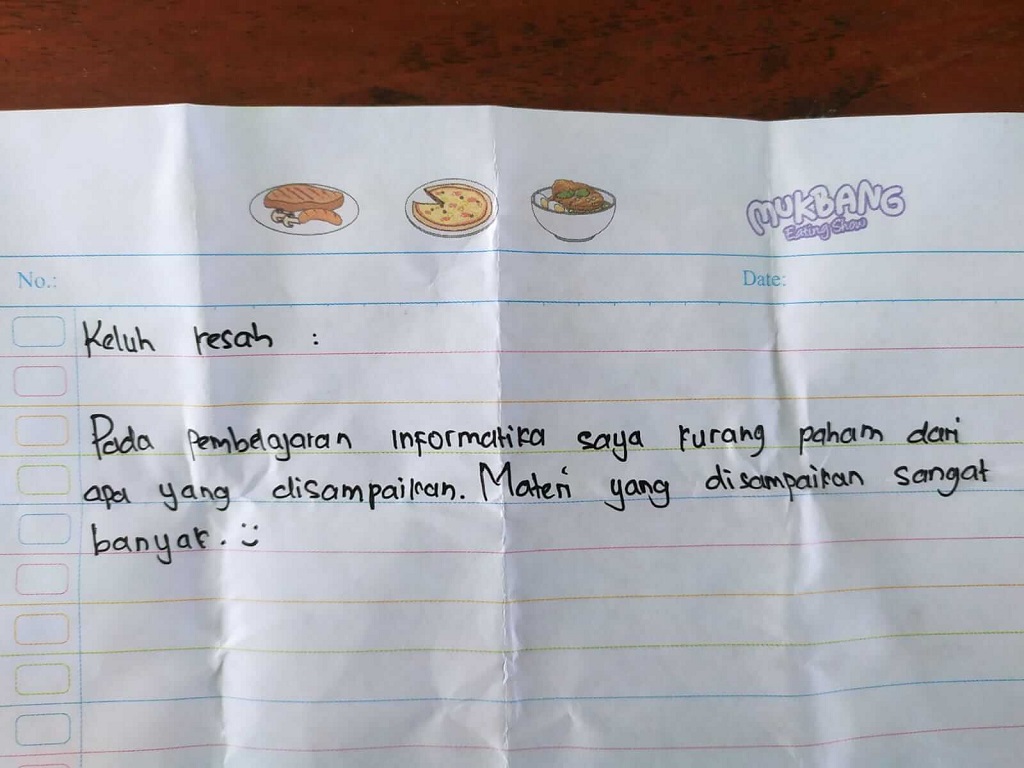 MUKBANG
Eating Show
No.: Date:
Keluh resah :
Pada pembelajaran informatika saya kurang paham dari
apa yang disampaikan. Materi yang disampaikan sangat
banyak. :)